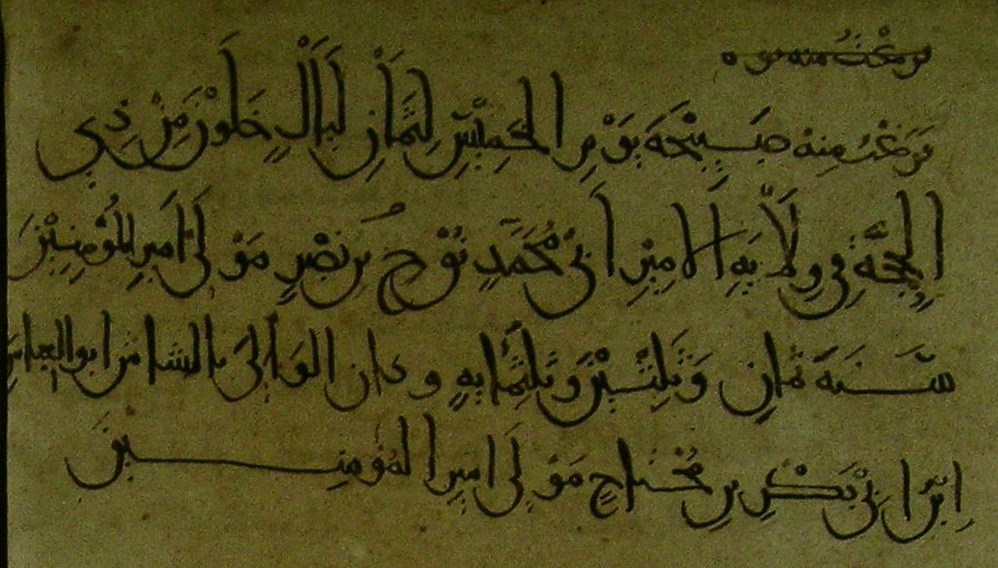 فرغت منه
فَرَغتُ مِنه صَبِيْحَةَ يَوْمِ الخَمِيْسِ لِثَمَانِ لَيَالٍ خَلَوْنَ مِنْ ذِي
الحِجَّةِ فِي وِلَايَةِ الامِيْرِ أَبي مُحَمَّدٍ نُوْحِ بْنِ نَصْرٍ مَوْلَى أَمِيرِ المُؤْمِنِيْنَ
سَنَةَ ثَمَانٍ وَثَلثِيْنَ وَثَلثِمَايةٍ وكان الوَالِيَ بالشاش ابو العباس
ابْنُ ابي بَكْرِ بنِ مُحْتَاجٍ مَوْلَى امِيرِ المُؤمِنِينَ